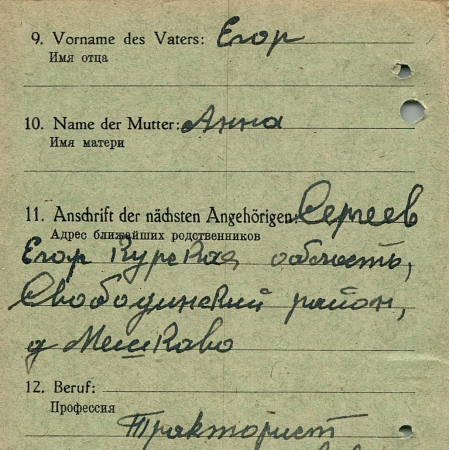 9. Vorname des Vaters: Егор
Имя отца
10. Name der Mutter: Анна
Имя матери
11. Anschrift der nächsten Angehörigen: Сергеев
Адрес ближайших родственников
Егор Курская область,
Свободинский район,
д Мешково
12. Beruf:
Профессия
Тракторист